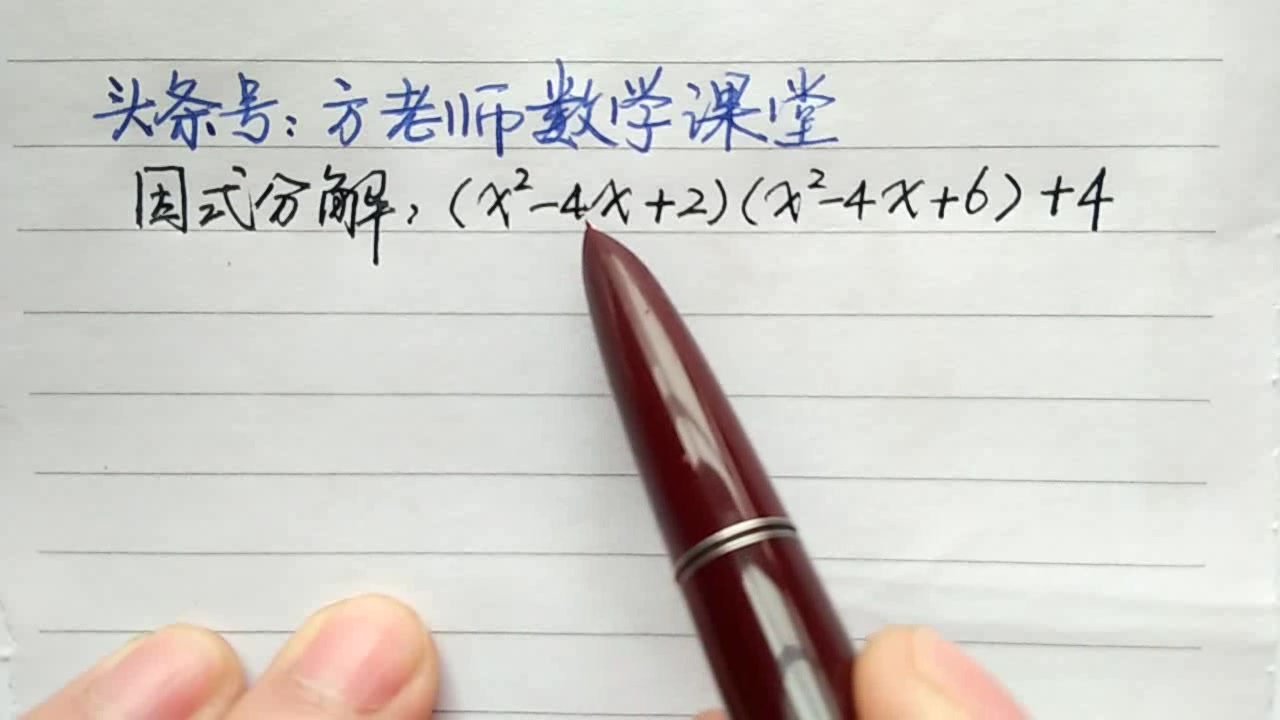 头条号:方老师数学课堂
因式分解,(x²-4x+2)(x²-4x+6)+4